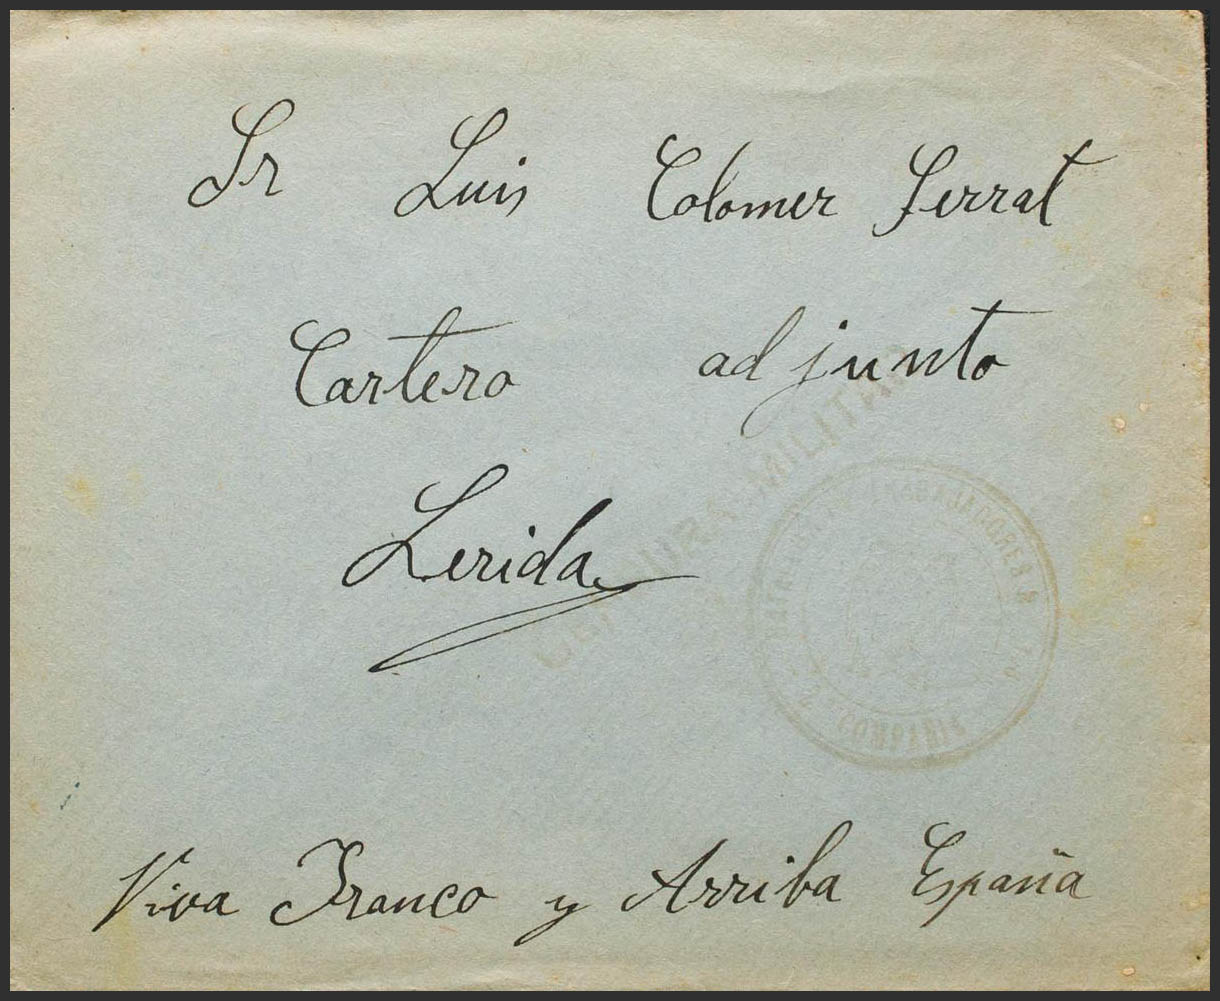 Sr Luis Colomer Serrat
Cartero adjunto
Lerida
CENSURA MILITAR
TRABAJADORES
2 COMPAÑIA
Viva Franco y Arriba España